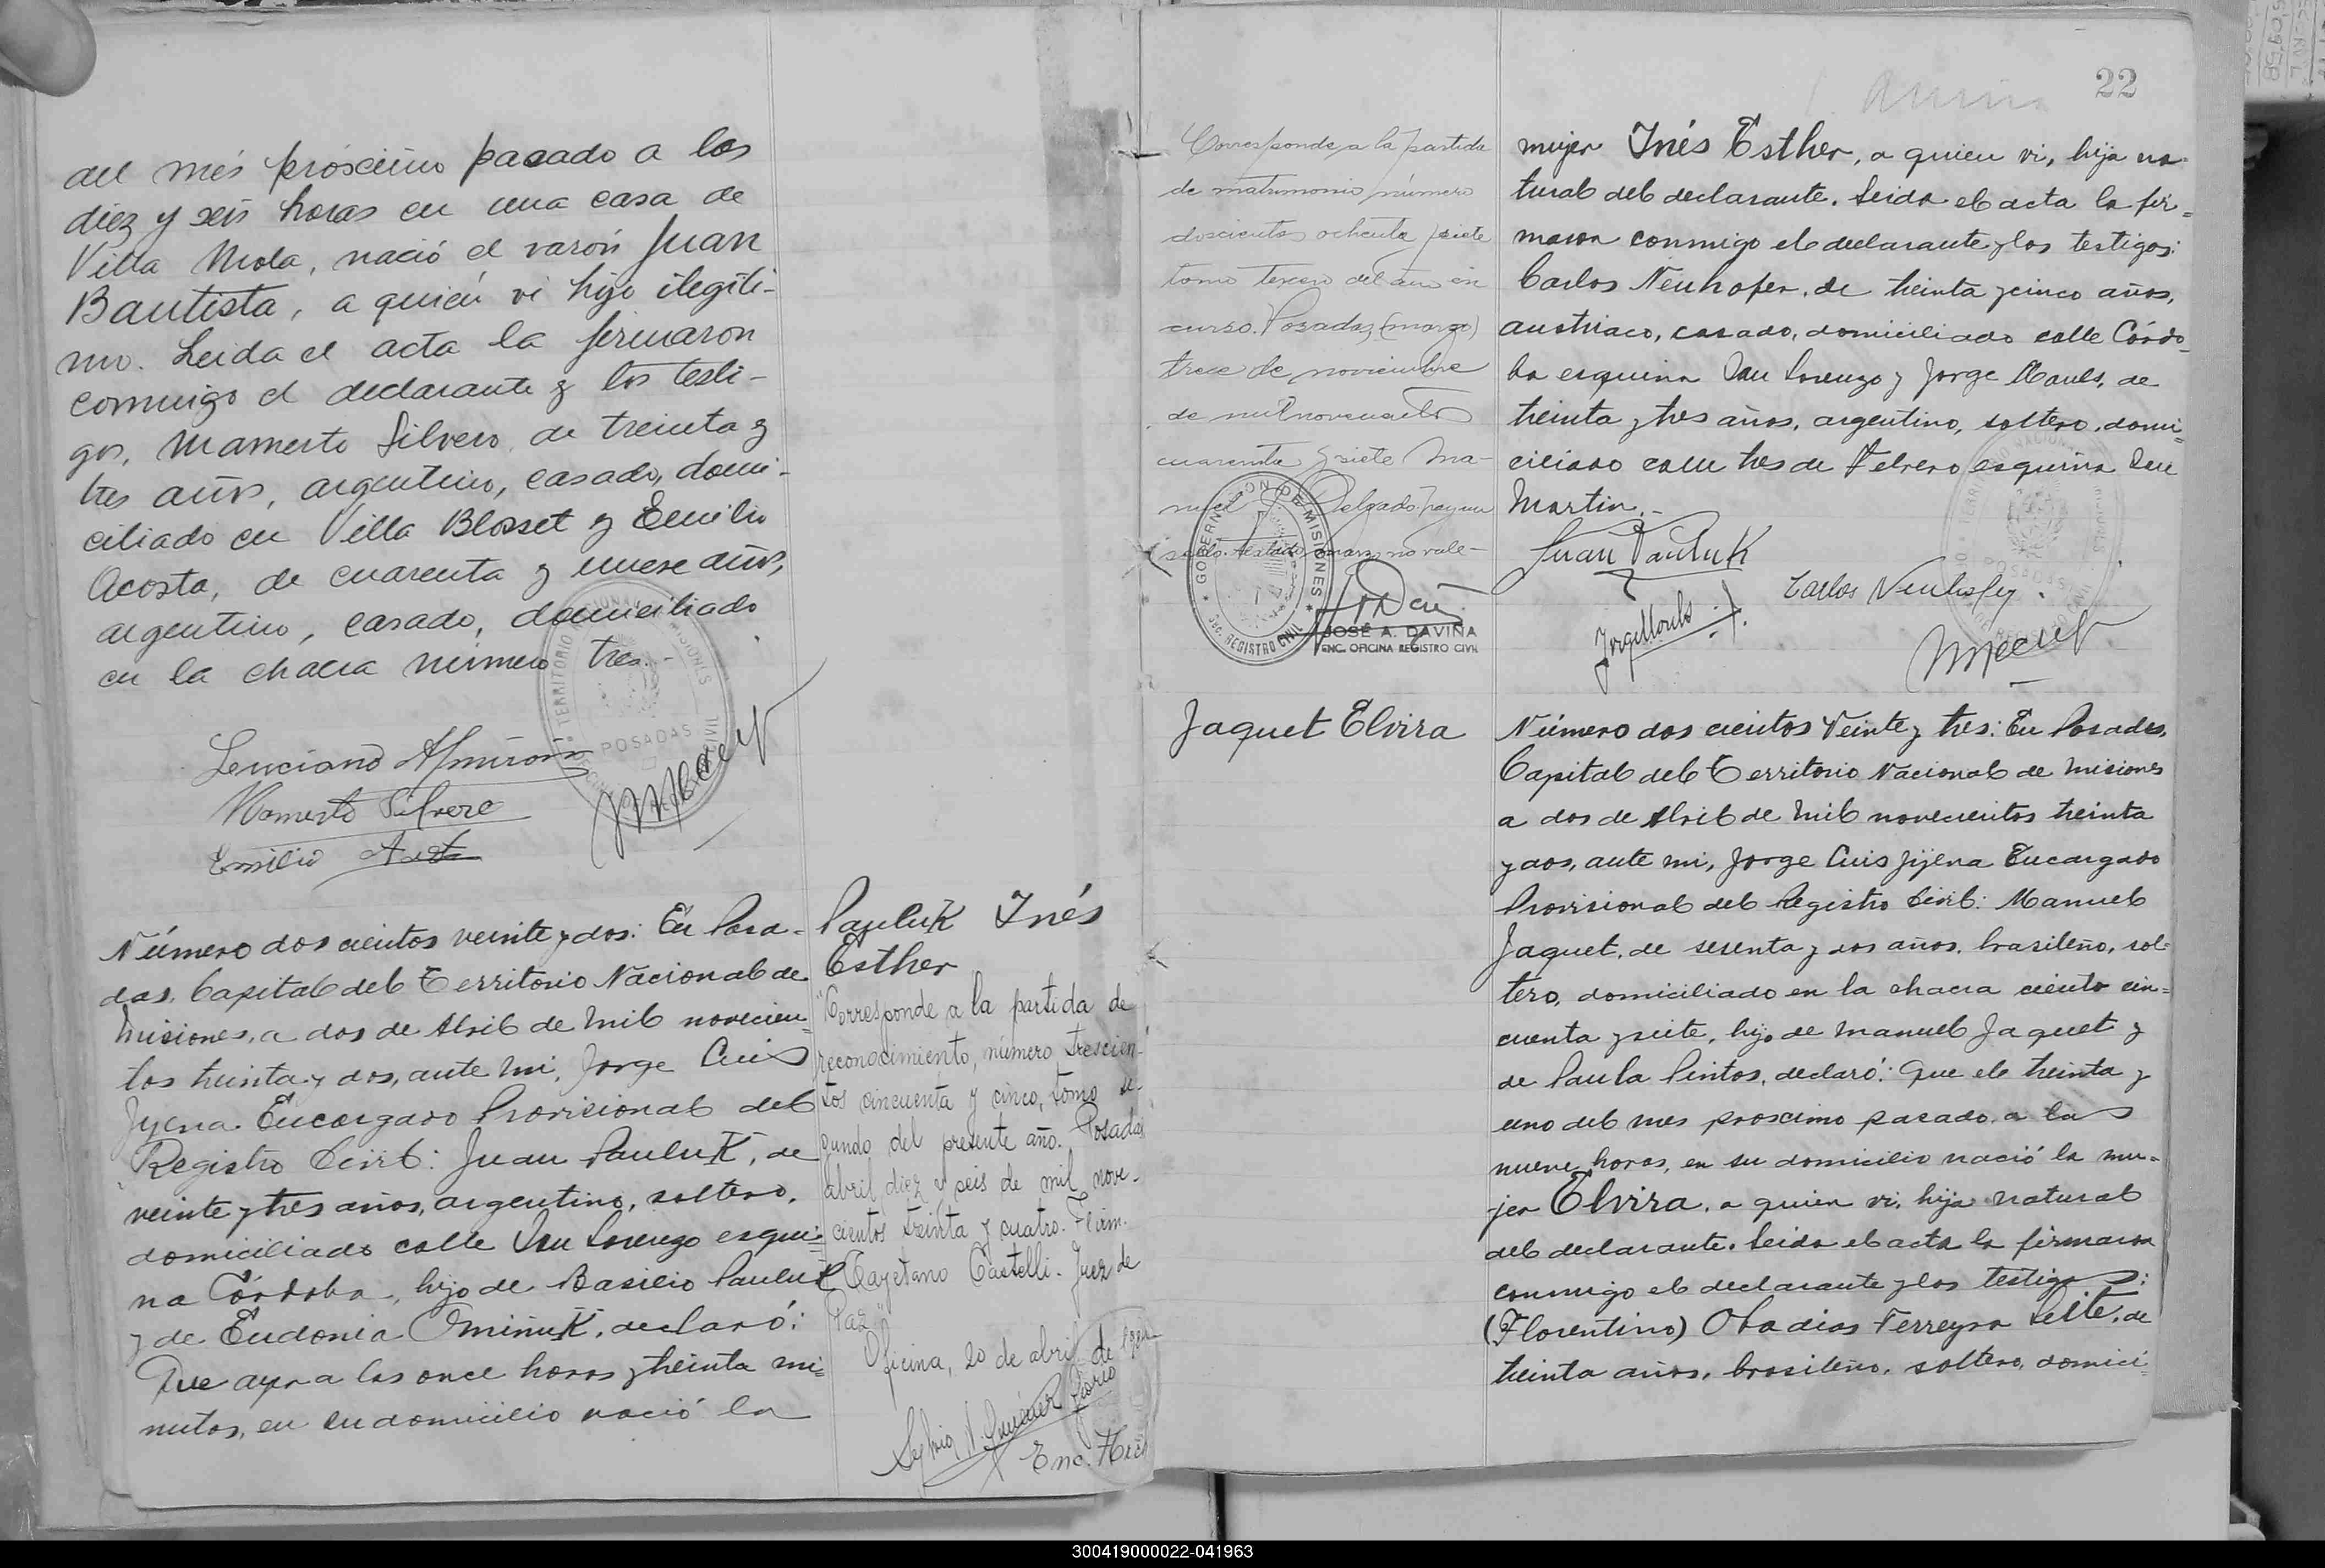 del més próscimo pasado a las
diez y seis horas en una casa de
Villa Mola, nació el varón Juan
Bautista, a quién vi hijo ilegíti-
mo. Leida el acta la firmaron
conmigo el declarante y los testi-
gos, Mamerto Silvero, de treinta y
tres años, argentino, casado, domi-
ciliado en Villa Blosset y Emilio
Acosta, de cuarenta y nueve años,
argentino, casado, domiciliado
en la chacra número tres.-
TERRITORIO NACIONAL MISIONES
POSADAS
Luciano Almiron
Mamerto Silvero
Emilio
Número dos cientos veinte y dos: En Posa-
das, Capital del Territorio Nacional de
Misiones, a dos de Abril de Mil novecien-
tos treinta y dos, ante mi, Jorge Luis
Jijena Encargado Provisional del
Registro Civil: Juan PauluK, de
veinte y tres años, argentino, soltero,
domiciliado calle San Lorenzo esqui-
na Córdoba, hijo de Basilio PauluK
y de Eudonia OmiñuK, declaró:
Que ayer a las once horas y treinta mi-
nutos, en su domicilio nació la
PauluK Inés
Esther
"Corresponde a la partida de
reconocimiento, número trescien-
tos cincuenta y cinco, tomo se-
gundo del presente año. Posadas
abril diez y seis de mil nove-
cientos treinta y cuatro. Firm.
Cayetano Castelli. Juez de
Paz"
Oficina, 20 de abril de
Enc.
22
Corresponde a la partida
de matrimonio número
doscientos ochenta y siete
tomo tercero del año en
curso. Posadas, (marzo)
trece de noviembre
de mil novecientos
cuarenta y siete Ma-
nuel J. Delgado. hay un
sello. testado marzo no vale-
GOBERNACION DE MISIONES
REGISTRO CIVIL
JOSÉ A. DAVIÑA
ENC. OFICINA REGISTRO CIVIL
mujer Inés Esther, a quien vi, hija na-
tural del declarante. Leida el acta la fir-
maron conmigo el declarante y los testigos:
Carlos Neuhofer, de treinta y cinco años,
austriaco, casado, domiciliado calle Córdo-
ba esquina San Lorenzo y Jorge Mauls, de
treinta y tres años, argentino, soltero, domi-
ciliado calle tres de Febrero esquina San
Martin.-
Juan PauluK
Carlos Neuhofer
Jaquet Elvira
Número dos cientos Veinte y tres: En Posadas,
Capital del Territorio Nacional de Misiones
a dos de Abril de Mil novecientos treinta
y dos, ante mi, Jorge Luis Jijena Encargado
Provisional del Registro Civil: Manuel
Jaquet, de sesenta y dos años, brasileño, sol-
tero, domiciliado en la chacra ciento cin-
cuenta y siete, hijo de Manuel Jaquet y
de Paula Pintos, declaró: Que el treinta y
uno del mes proscimo pasado, a las
nueve horas, en su domicilio nació la mu-
jer Elvira, a quien vi, hija natural
del declarante. Leida el acta la firmaron
conmigo el declarante y los testigos:
(Florentino) Obadias Ferreyra Leite, de
treinta años, brasileño, soltero, domici-
300419000022-041963